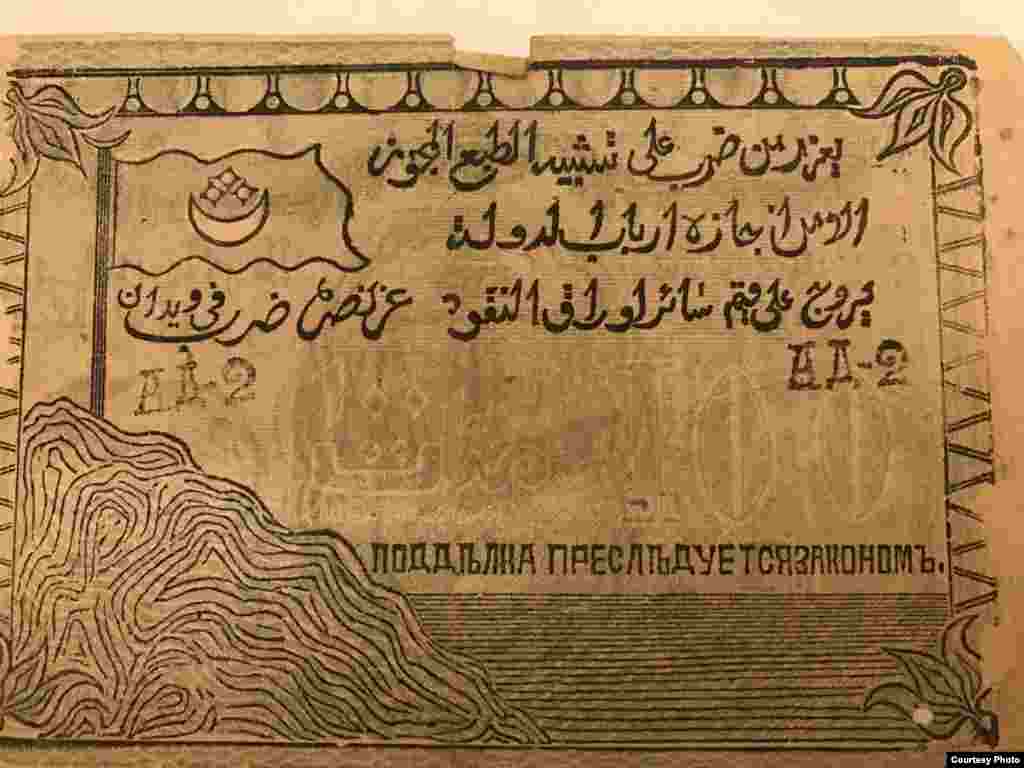 يعزر من ضرب على تشبيه الطبع المجوز
ارباب الدولة
يروج على قيم سائر اوراق النقود عز نصره ضرب في ويدان
НД-2 НД-2
ПОДДѢЛКА ПРЕСЛѢДУЕТСЯ ЗАКОНОМЪ.
Courtesy Photo